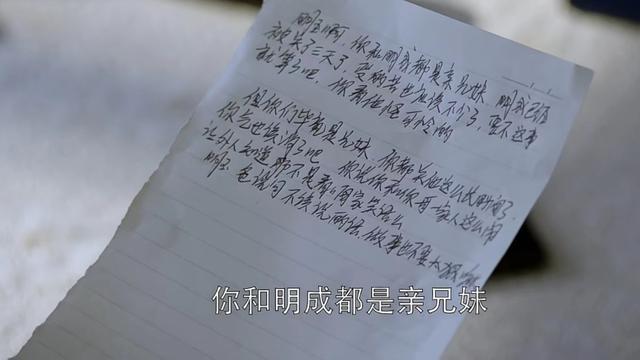 明玉啊,你和明成都是亲兄妹,明成已经
被关了三天了,受的苦也应该不少了,要不这事
就算了吧,你看他怪可怜的
但你们毕竟是兄妹,你都关他这么长时间了,
你气也该消了吧 你说你和你母一家人这么闹
让外人知道 不是看咱家笑话么
明玉,爸说句不该说的话,做事也不要太狠
你和明成都是亲兄妹